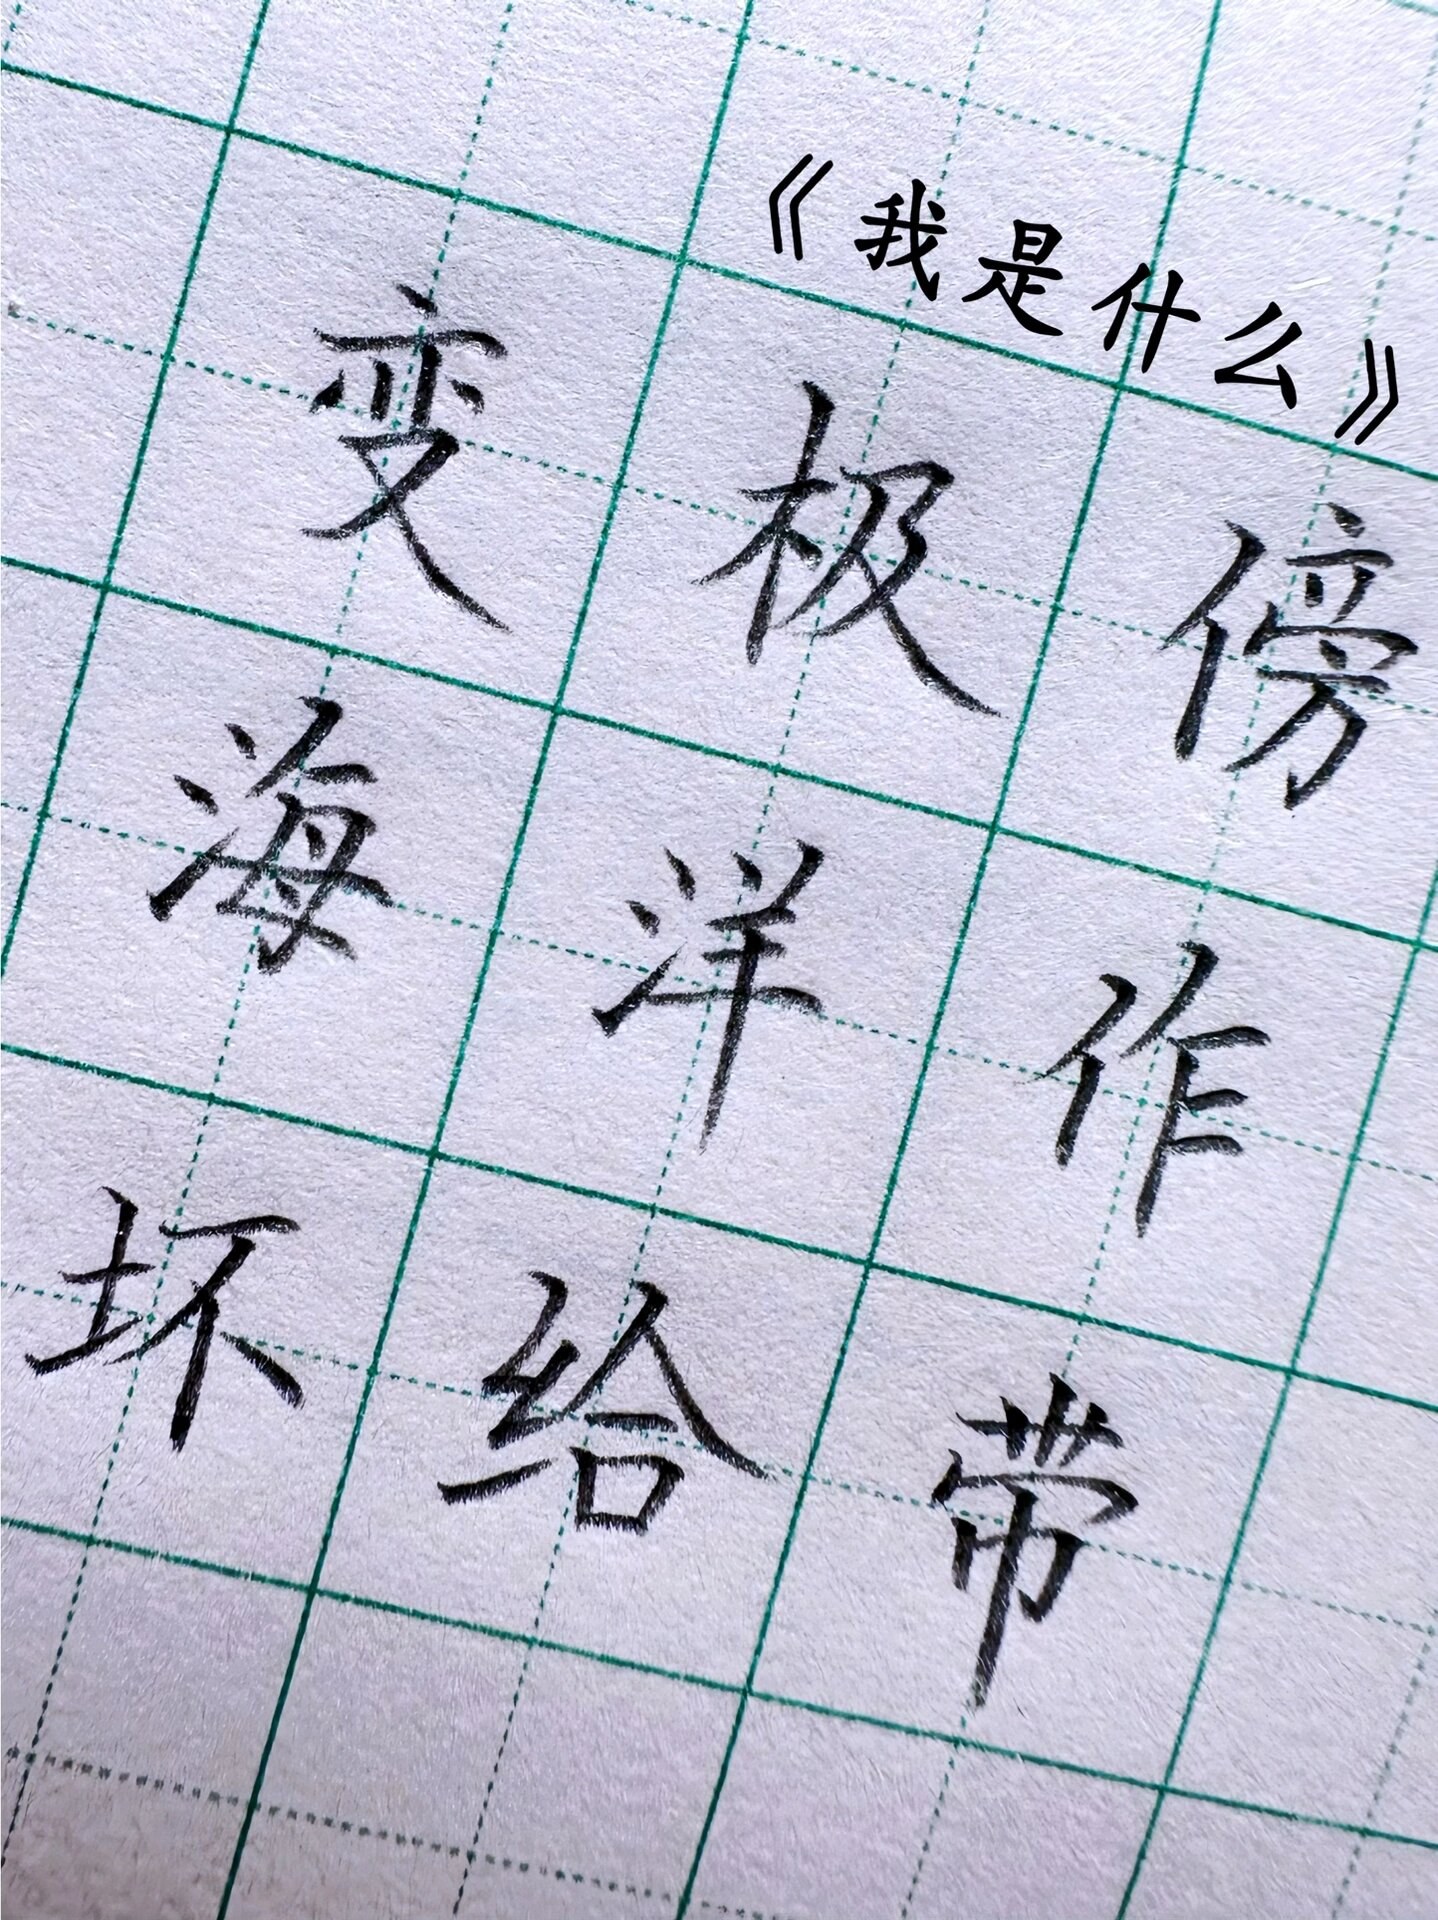 《我是什么》
变极傍
海洋作
坏给带